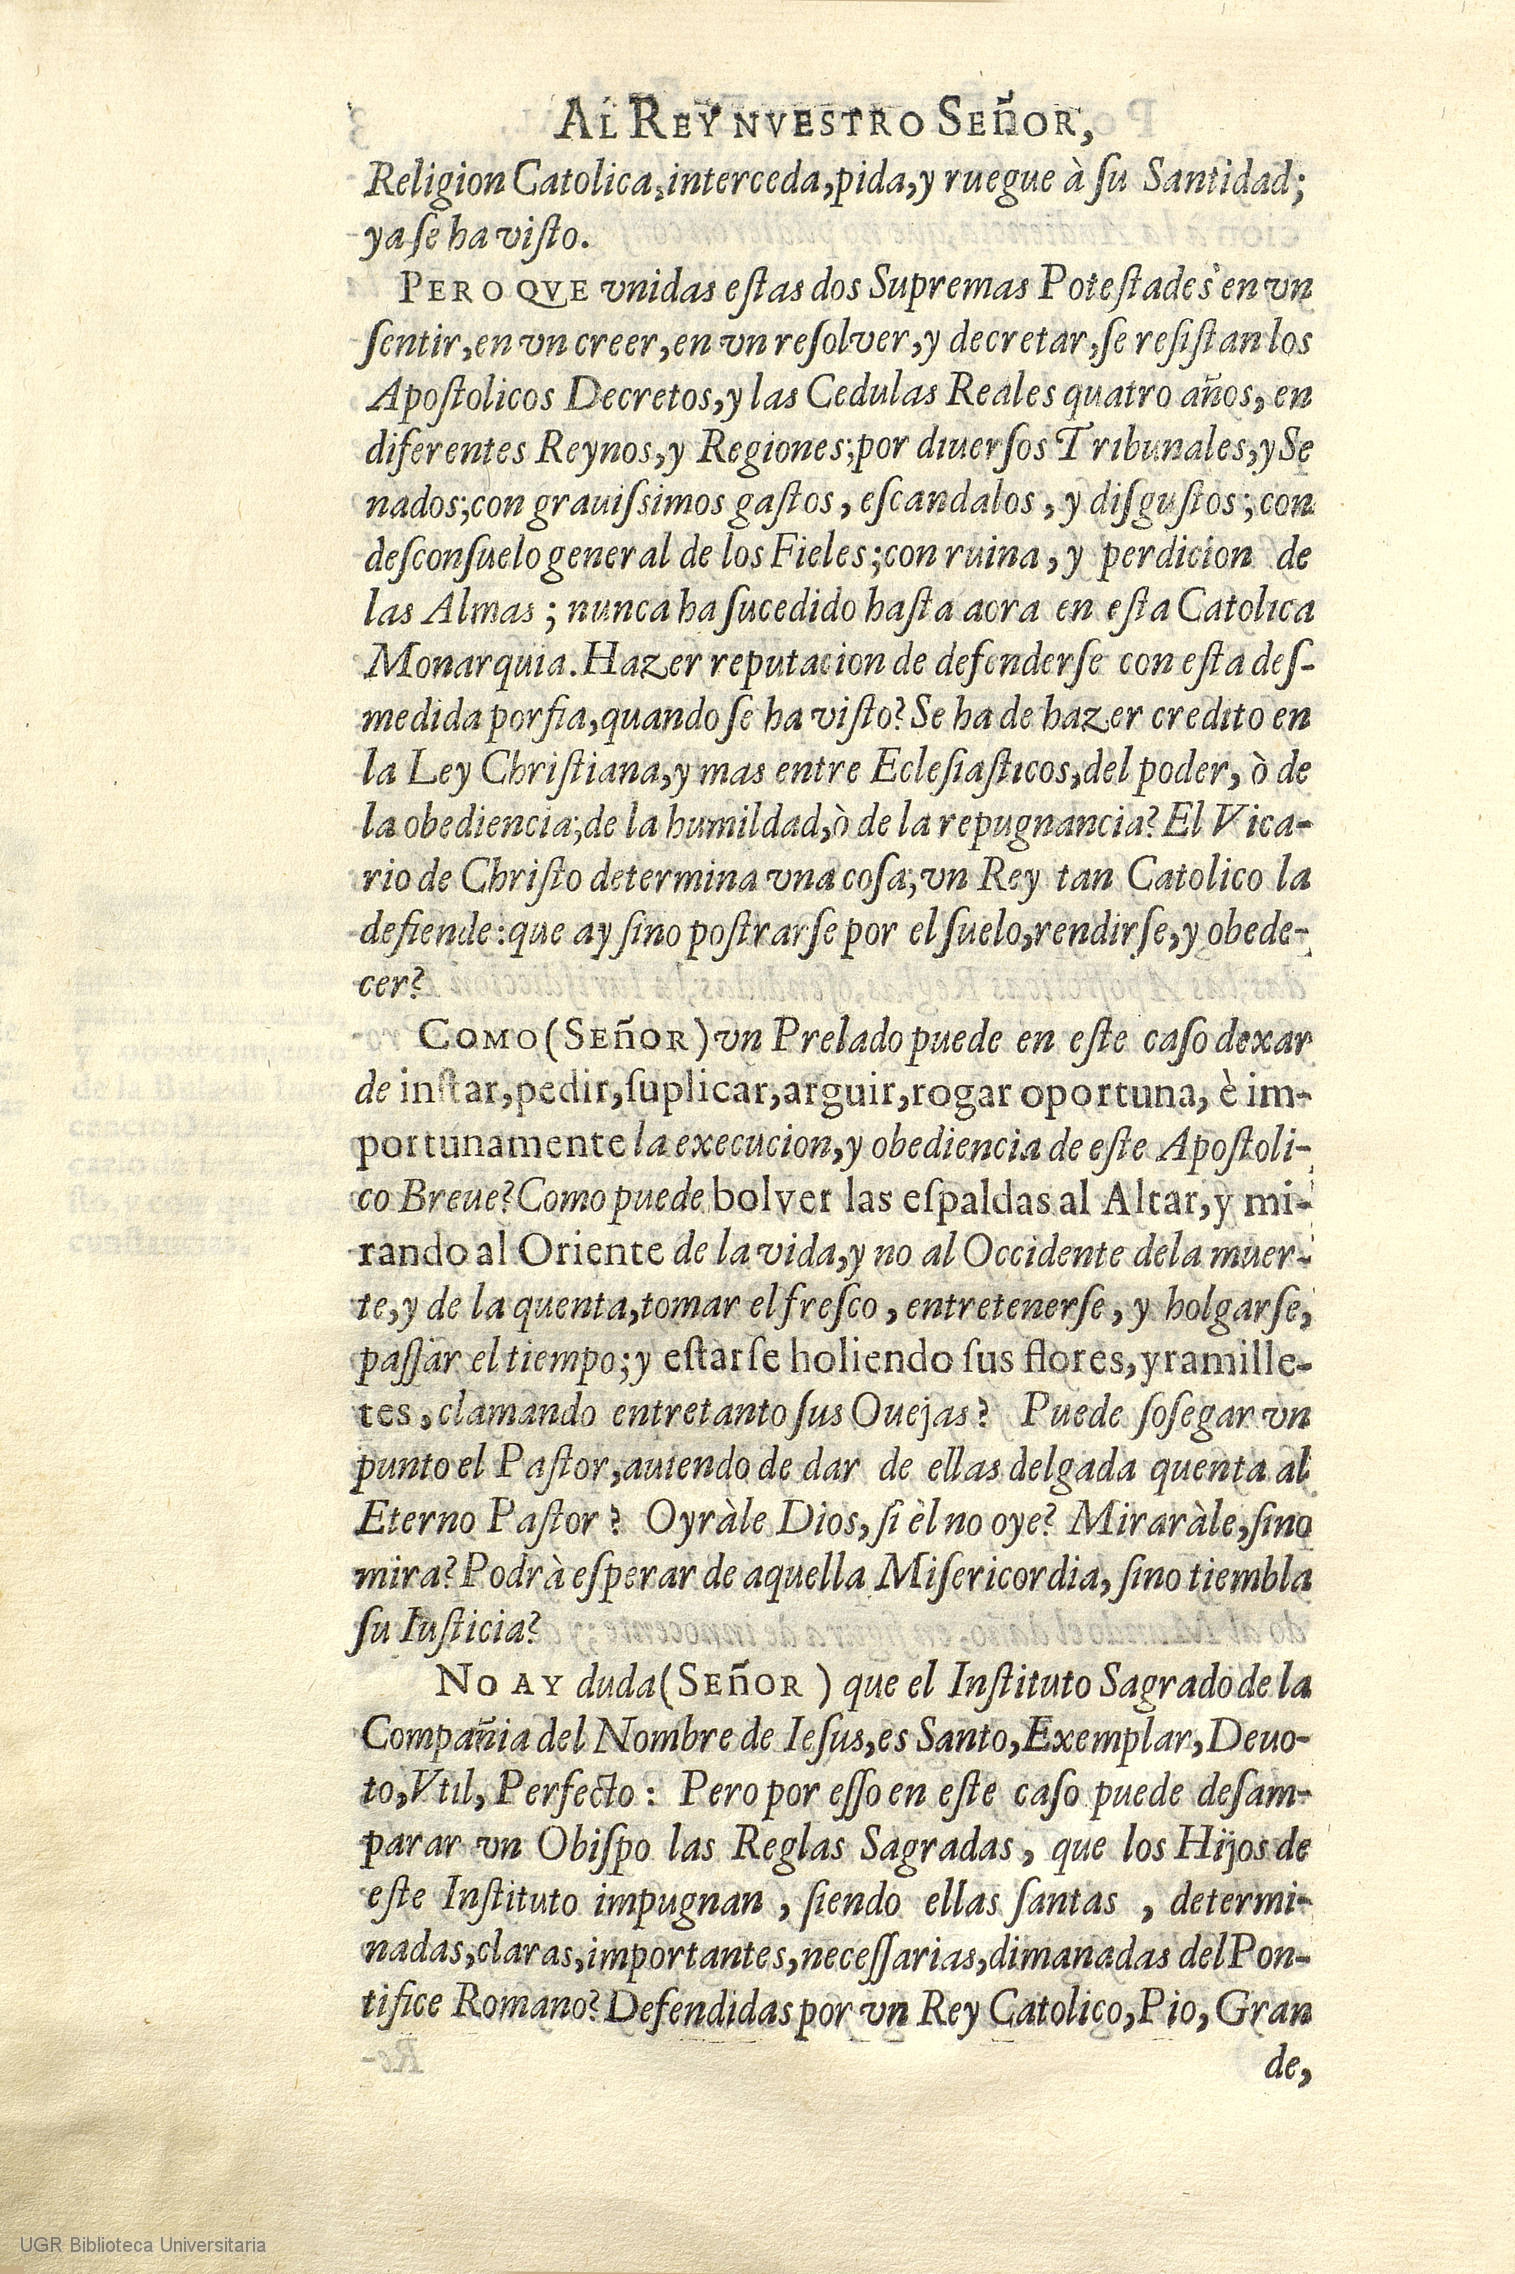 AL REY NVESTRO SEÑOR,
Religion Catolica, interceda, pida, y ruegue à ſu Santidad;
ya ſe ha viſto.
PERO QVE vnidas eſtas dos Supremas Poteſtades en vn
ſentir, en vn creer, en vn reſolver, y decretar, ſe reſiſtan los
Apoſtolicos Decretos, y las Cedulas Reales quatro años, en
diferentes Reynos, y Regiones; por diuerſos Tribunales, y Se
nados; con grauiſsimos gaſtos, eſcandalos, y diſguſtos; con
deſconſuelo general de los Fieles; con ruina, y perdicion de
las Almas; nunca ha ſucedido haſta aora en eſta Catolica
Monarquia. Hazer reputacion de defenderſe con eſta deſ-
medida porfia, quando ſe ha viſto? Se ha de hazer credito en
la Ley Chriſtiana, y mas entre Ecleſiaſticos, del poder, ò de
la obediencia; de la humildad, ò de la repugnancia? El Vica-
rio de Chriſto determina vna coſa; vn Rey tan Catolico la
defiende: que ay ſino poſtrarſe por el ſuelo, rendirſe, y obede-
cer?
COMO (SEÑOR) vn Prelado puede en eſte caſo dexar
de inſtar, pedir, ſuplicar, arguir, rogar oportuna, è im-
portunamente la execucion, y obediencia de eſte Apoſtoli-
co Breue? Como puede bolver las eſpaldas al Altar, y mi-
rando al Oriente de la vida, y no al Occidente de la muer-
te, y de la quenta, tomar el freſco, entretenerſe, y holgarſe,
paſſar el tiempo; y eſtarſe holiendo ſus flores, y ramille-
tes, clamando entretanto ſus Ouejas? Puede ſoſegar vn
punto el Paſtor, auiendo de dar de ellas delgada quenta al
Eterno Paſtor? Oyràle Dios, ſi èl no oye? Miraràle, ſino
mira? Podrà eſperar de aquella Miſericordia, ſino tiembla
ſu Iuſticia?
NO AY duda (SEÑOR) que el Inſtituto Sagrado de la
Compañia del Nombre de Ieſus, es Santo, Exemplar, Deuo-
to, Vtil, Perfecto: Pero por eſſo en eſte caſo puede deſam-
parar vn Obiſpo las Reglas Sagradas, que los Hijos de
eſte Inſtituto impugnan, ſiendo ellas ſantas, determi-
nadas, claras, importantes, neceſſarias, dimanadas del Pon-
tifice Romano? Defendidas por vn Rey Catolico, Pio, Gran
de,
UGR Biblioteca Universitaria